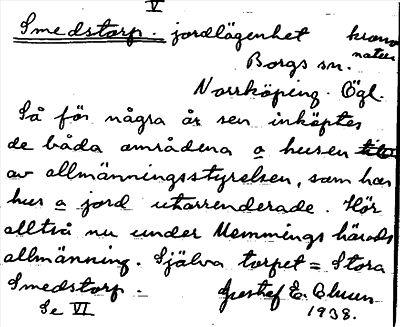 V
Smedstorp. jordlägenhet krono
natur
Borgs sn.
Norrköping. Ögl.
Så för några år sen inköptes
de båda områdena o husen till
av allmänningsstyrelsen, som har
hus o jord utarrenderade. Hör
alltså nu under Memmings härads
allmänning. Själva torpet = Stora
Smedstorp.
Gustaf E. Bluun
Se VI
1938.